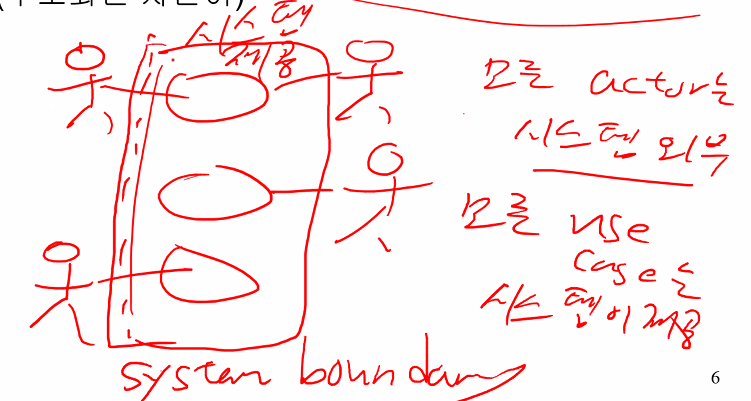 시스템
제공
모든 actor는
시스템 외부
모든 use
case는
시스템이 제공
system boundary
6